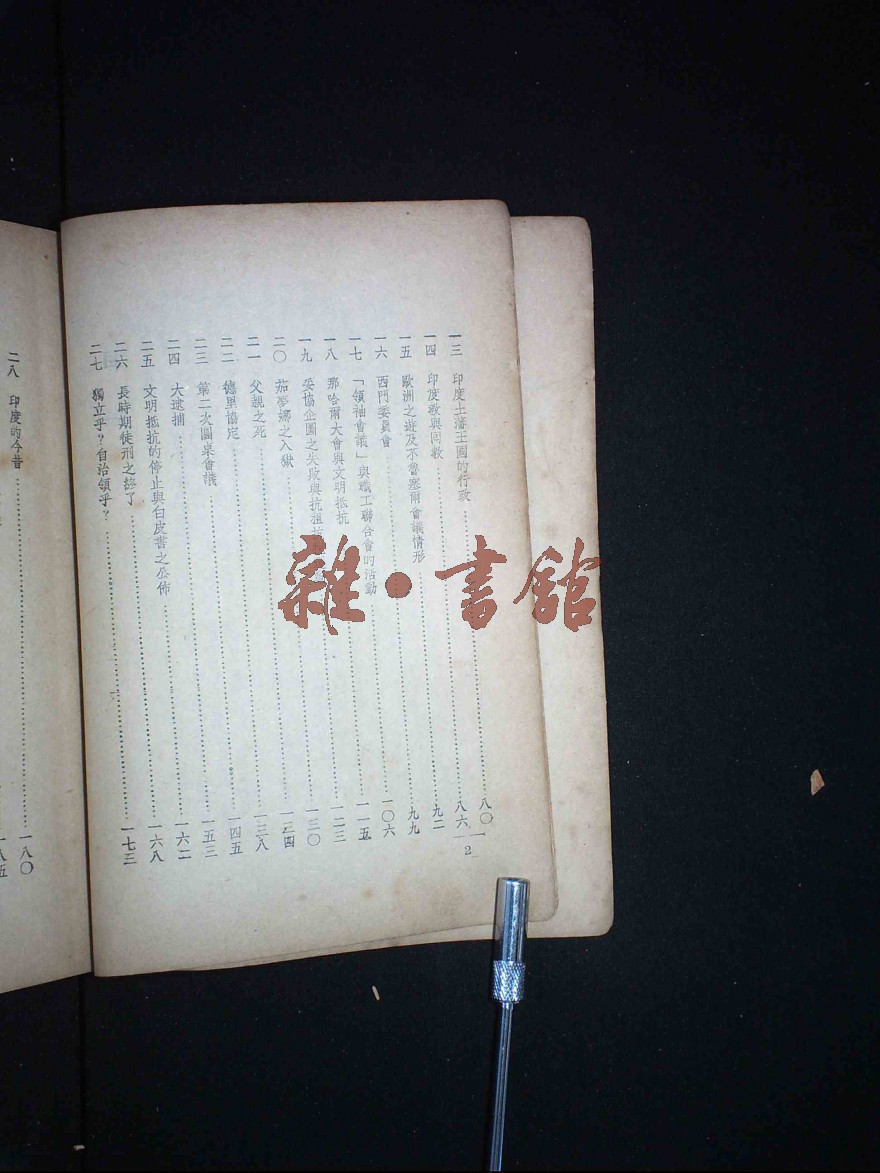 一三　印度土藩王國的行政……八〇
一四　印度教與回教……八六
一五　歐洲之遊及不魯塞爾會議情形……九二
一六　西門委員會……九九
一七　「領袖會議」與職工聯合會的活動……一〇六
一八　那哈爾大會與文明抵抗……一一五
一九　妥協企圖之失敗與抗租……一二三
二〇　茄夢娜之入獄……一三〇
二一　父親之死……一三四
二二　德里協定……一三八
二三　第二次圓桌會議……一四五
二四　大逮捕……一五三
二五　文明抵抗的停止與白皮書之公佈……一六二
二六　長時期徒刑之終了……一六八
二七　獨立乎？自治領乎？……一七三
2
二八　印度的今昔……一八〇
一八五
雜·書館